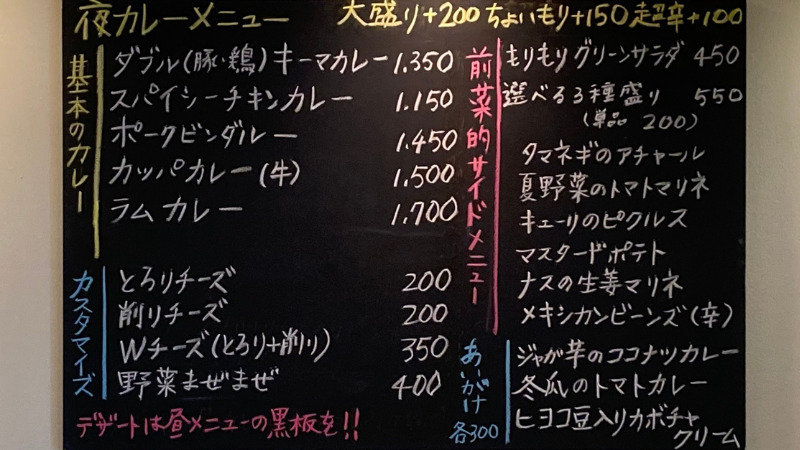 夜カレーメニュー 大盛り+200 ちょいもり+150 超辛+100
基本のカレー
ダブル(豚・鶏)キーマカレー 1.350
スパイシーチキンカレー 1.150
ポークビンダルー 1.450
カッパカレー(牛) 1.500
ラムカレー 1.700
カスタマイズ
とろりチーズ 200
削りチーズ 200
Wチーズ(とろり+削り) 350
野菜まぜまぜ 400
デザートは昼メニューの黒板を!!
前菜的サイドメニュー
もりもりグリーンサラダ 450
選べる3種盛り 550
(単品 200)
タマネギのアチャール
夏野菜のトマトマリネ
キューリのピクルス
マスタードポテト
ナスの生姜マリネ
メキシカンビーンズ(辛)
あいがけ
各300
ジャガ芋のココナツカレー
冬瓜のトマトカレー
ヒヨコ豆入りカボチャ
クリーム